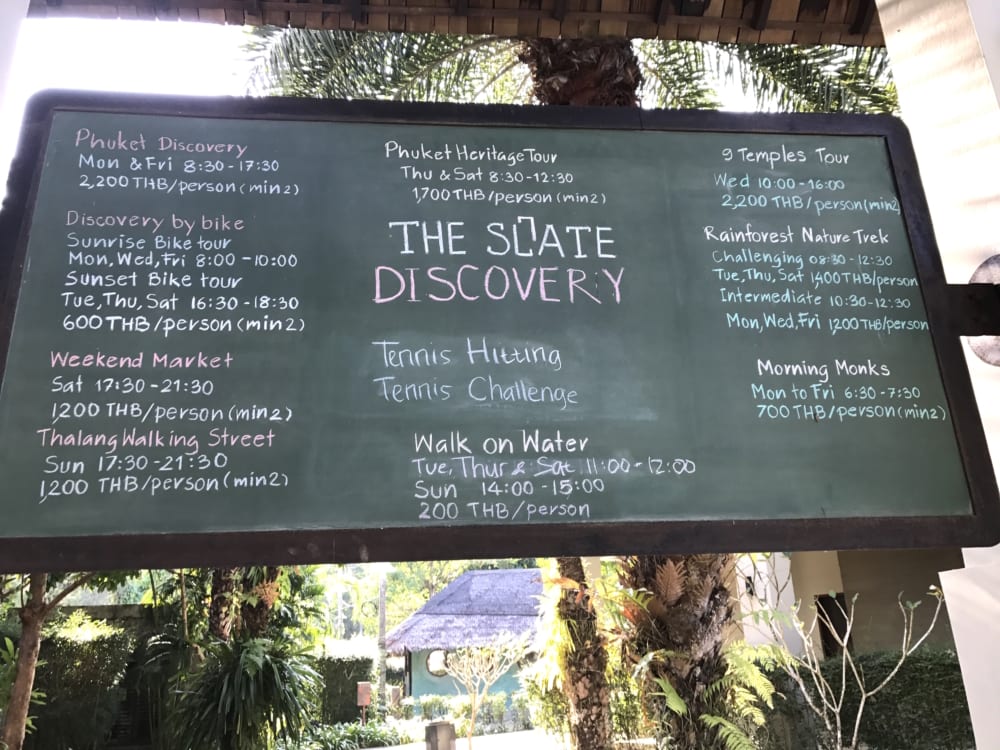 Phuket Discovery
Mon & Fri 8:30-17:30
2,200 THB/person (min 2)
Discovery by bike
Sunrise Bike tour
Mon, Wed, Fri 8:00 - 10:00
Sunset Bike tour
Tue, Thu, Sat 16:30 - 18:30
600 THB/person (min 2)
Weekend Market
Sat 17:30 - 21:30
1,200 THB/person (min 2)
Thalang Walking Street
Sun 17:30 - 21:30
1,200 THB/person (min 2)
Phuket Heritage Tour
Thu & Sat 8:30 - 12:30
1,700 THB/person (min 2)
THE SLATE
DISCOVERY
Tennis Hitting
Tennis Challenge
Walk on Water
Tue, Thur & Sat 11:00 - 12:00
Sun 14:00 - 15:00
200 THB/person
9 Temples Tour
Wed 10:00 - 16:00
2,200 THB/person (min 2)
Rainforest Nature Trek
Challenging 08:30 - 12:30
Tue, Thu, Sat 1,400 THB/person
Intermediate 10:30 - 12:30
Mon, Wed, Fri 1,200 THB/person
Morning Monks
Mon to Fri 6:30 - 7:30
700 THB/person (min 2)